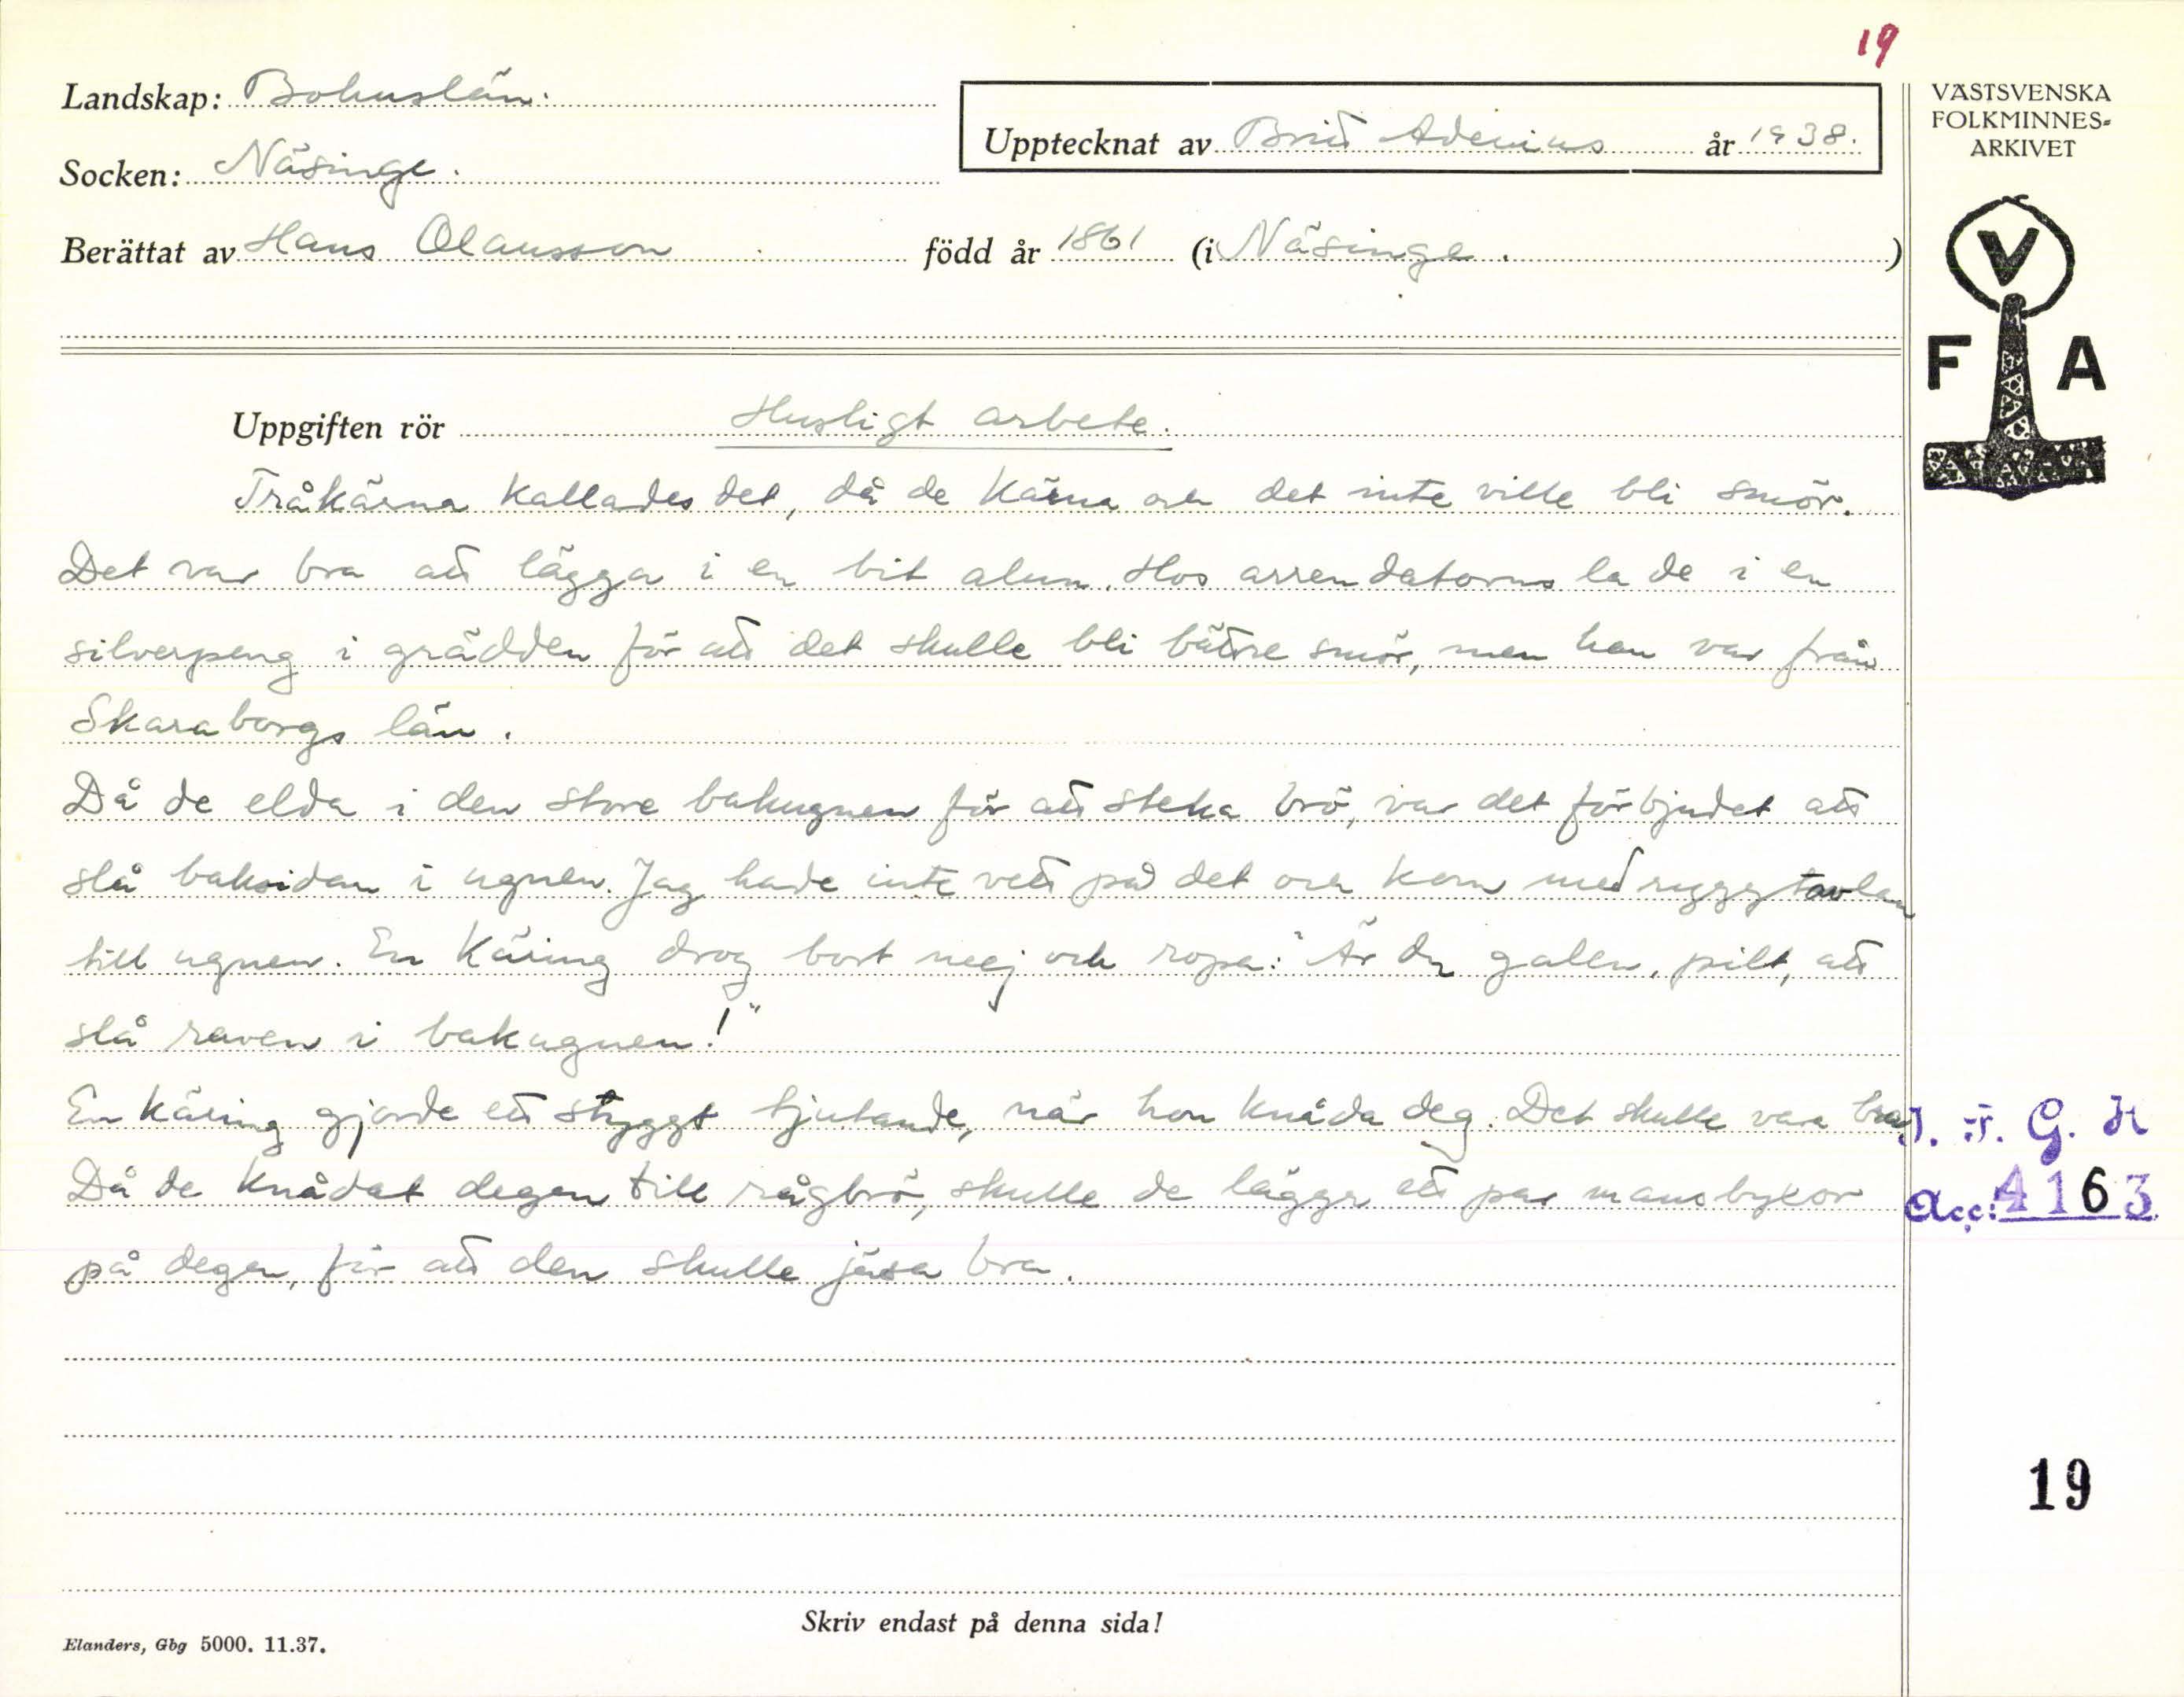 19
Landskap: Bohuslän.
Upptecknat av Britt Adenius år 1938.
VÄSTSVENSKA
FOLKMINNES-
ARKIVET
Socken: Näsinge.
Berättat av Hans Olausson född år 1861 (i Näsinge.)
V
F A
Uppgiften rör Husligt arbete.
Tråkärna kallades det, då de kärna och det inte ville bli smör.
Det var bra att lägga i en bit alun. Hos arrendatorns la de i en
silverpeng i grädden för att det skulle bli bättre smör, men han var från
Skaraborgs län.
Då de elda i den store bakugnen för att steka brö, var det förbjudet att
slå baksidan i ugnen. Jag hade inte vett på det och kom med ryggtavlan
till ugnen. En käring drog bort mej och ropa: "Är du galen, pilt, att
slå raven i bakugnen!"
En käring gjorde ett styggt tjutande, när hon knåda deg. Det skulle vara bra
Då de knådat degen till rågbrö, skulle de lägga ett par mansbyxor
på degen, för att den skulle jäsa bra.
I. F. G. H
Acc: 4163
19
Skriv endast på denna sida!
Elanders, Gbg 5000. 11.37.